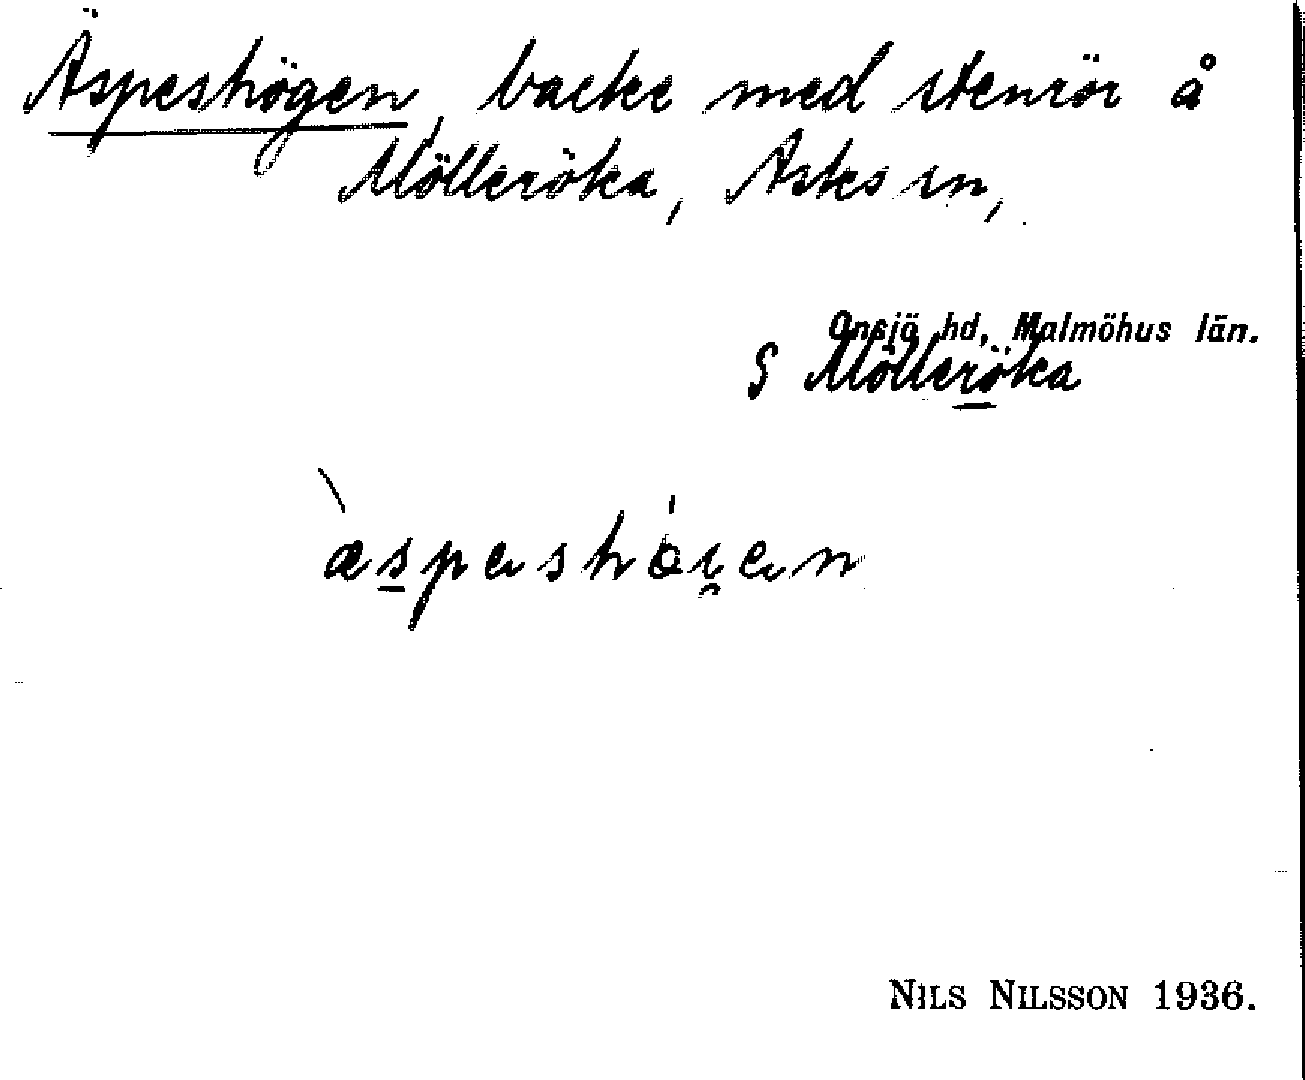 Äspeshögen, backe med stenrör å
Mölleröka, Asks sn,
Onsjö hd, Malmöhus län.
S Mölleröka
NILS NILSSON 1936.